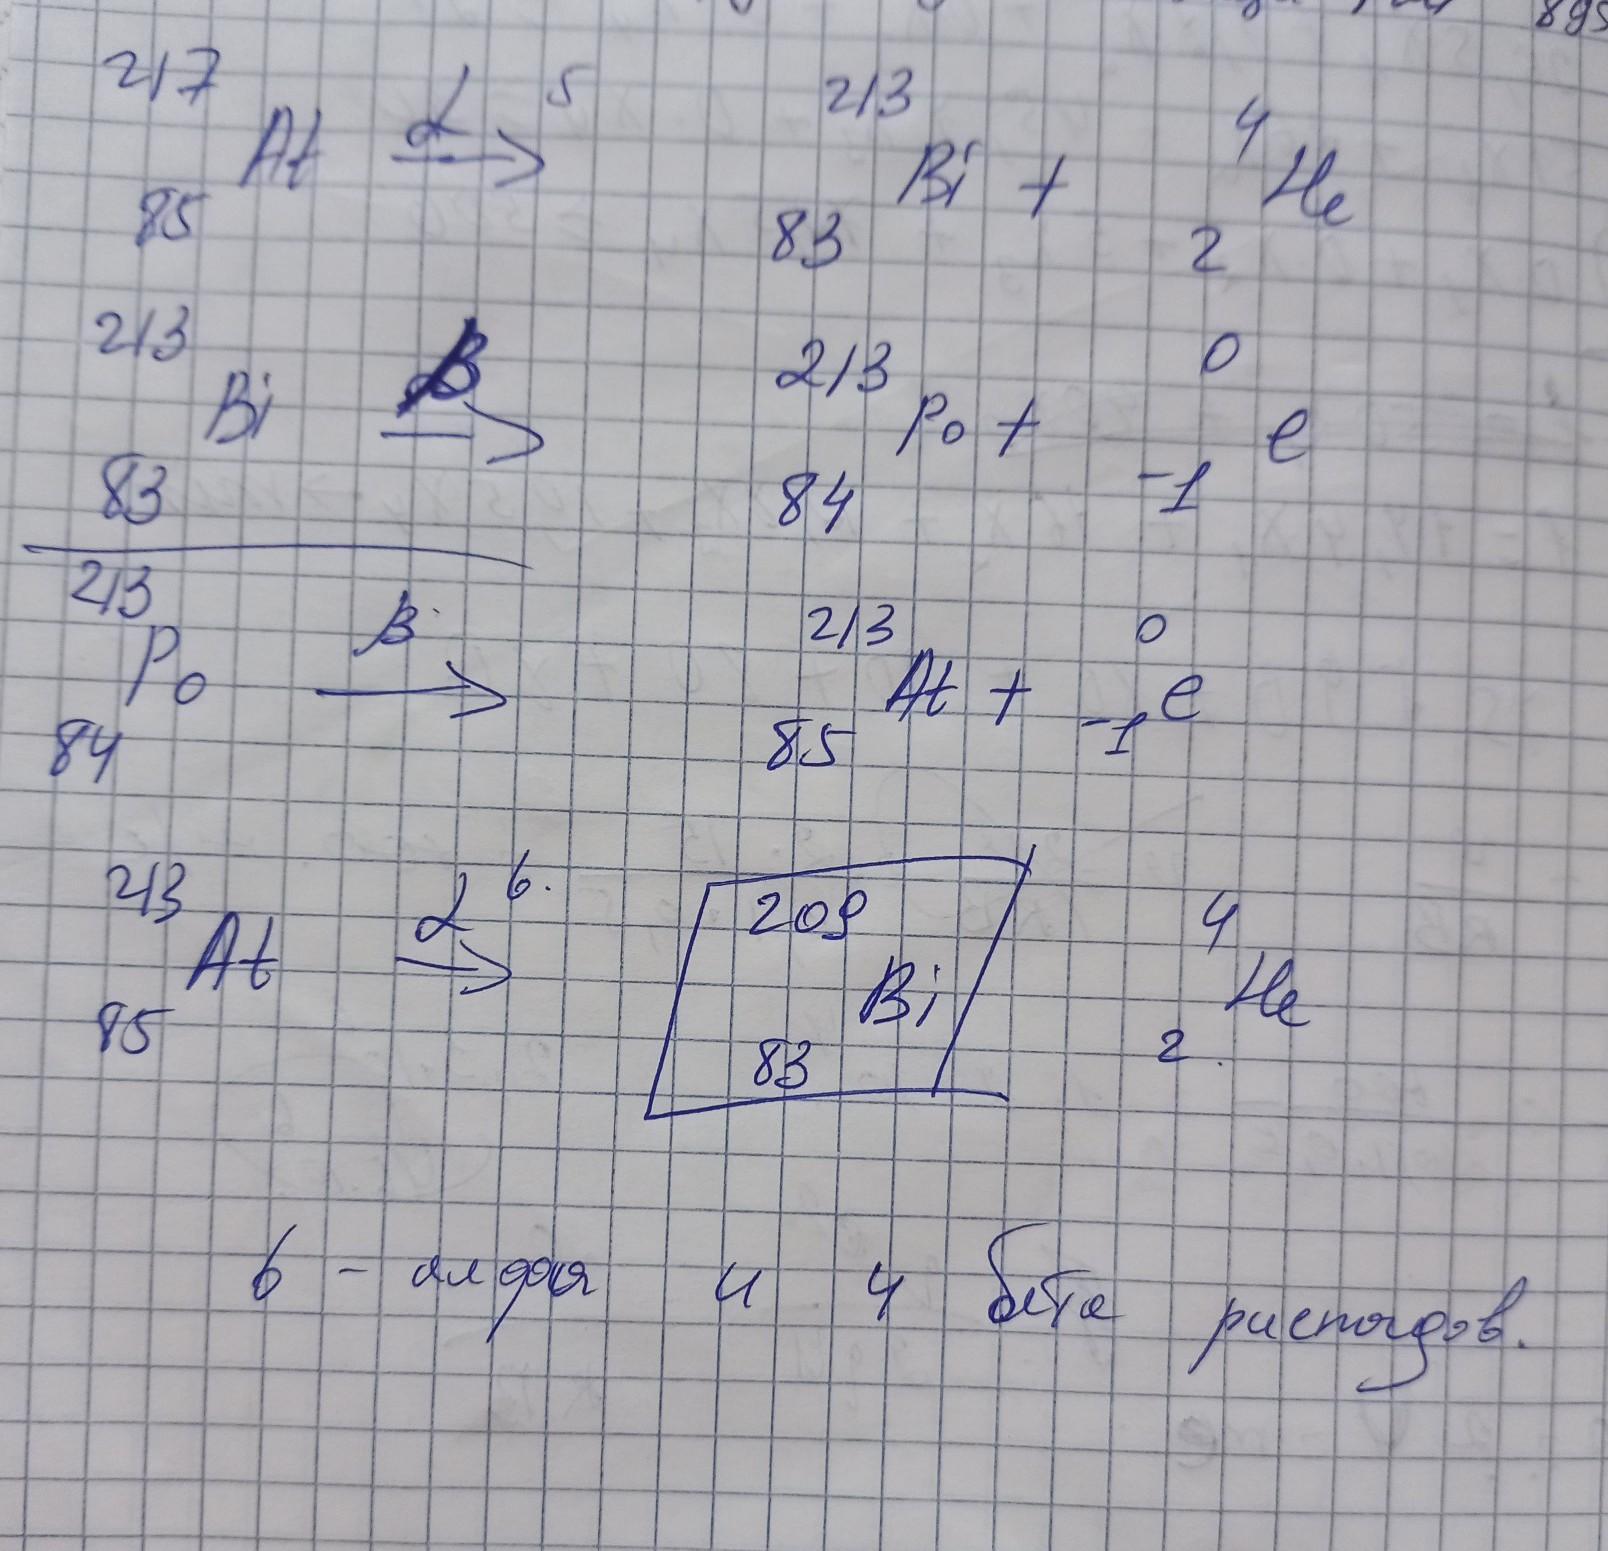 895
217 85 At α 5 → 213 83 Bi + 4 2 He
213 83 Bi β → 213 84 Po + 0 -1 e
213 84 Po β → 213 85 At + 0 -1 e
213 85 At α 6. → 209 83 Bi 4 2 He
6 - альфа и 4 бета распадов.